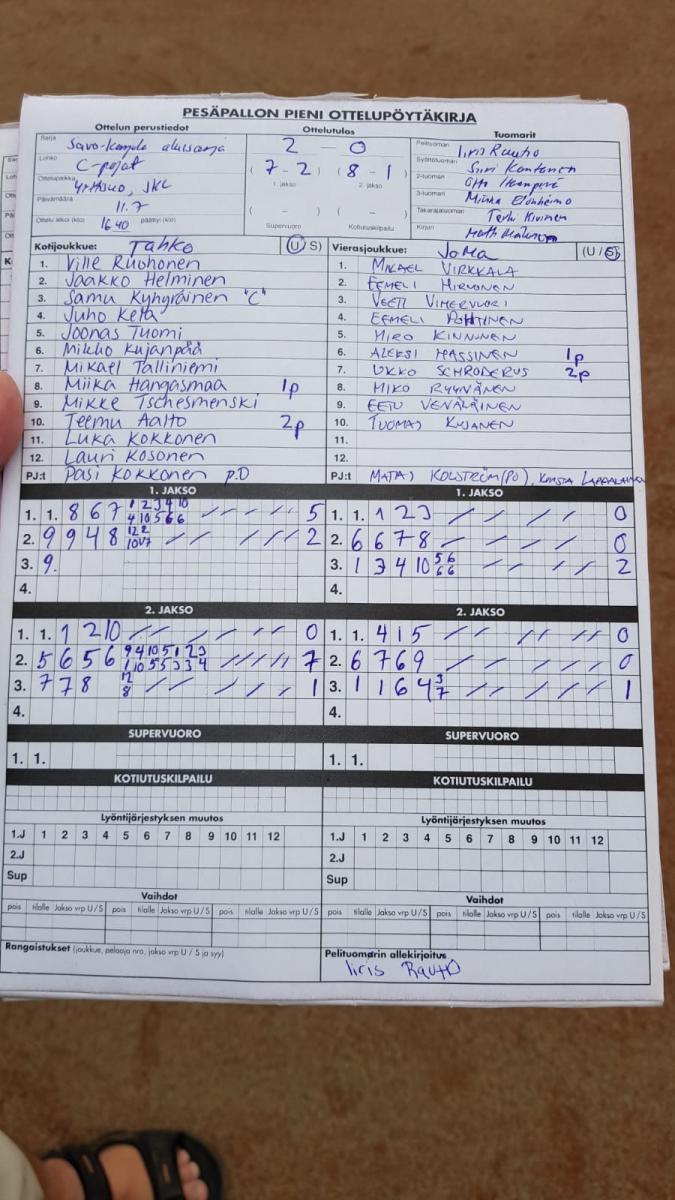 PESÄPALLON PIENI OTTELUPÖYTÄKIRJA
Ottelun perustiedot
Sarja Savo-Karjala aluesarja
Lohko C-pojat
Ottelupaikka JKL
Päivämäärä 11.7
Ottelu alkoi (klo) 16.40 päättyi (klo)
Ottelutulos
2 — 0
( 7 - 2 ) ( 8 - 1 )
1. jakso 2. jakso
( - ) ( - )
Supervuoro Kotiutuskilpailu
Tuomarit
Pelituomari Iiris Rautio
Syöttötuomari Suvi Kantanen
2-tuomari Otto
3-tuomari Minka
Takarajatuomari Terhi Kivinen
Kirjuri
Kotijoukkue: Tahko (U/S)
1. Ville Ruohonen
2. Jaakko Helminen
3. Samu Kyhyräinen "C"
4. Juho Keta
5. Joonas Tuomi
6. Mikko Kujanpää
7. Mikael Talliniemi
8. Miika Hangasmaa 1p
9. Mikke Tschesmenski
10. Teemu Aalto 2p
11. Luka Kokkonen
12. Lauri Kosonen
PJ:t Pasi Kokkonen p.o
Vierasjoukkue: JoMa (U/S)
1. MIKAEL VIRKKALA
2. EEMELI HIRVONEN
3. VEETI VIHERVUORI
4. EEMELI POHTINEN
5. MIRO KINNUNEN
6. ALEKSI MASSINEN 1p
7. UKKO SCHRODERUS 2p
8. MIKO RYYNÄNEN
9. EETU VENÄLÄINEN
10. TUOMAS KUJANEN
11.
12.
PJ:t MATAS KOLSTRÖM (PO),
1. JAKSO
1. 1. 8 6 7 1 2 3 4 10 5
4 10 5 6 6
2. 9 9 4 8 12 2 2
10 1 7
3. 9.
4.
1. JAKSO
1. 1. 1 2 3 0
2. 6 6 7 8 0
3. 1 3 4 10 5 6 2
6 6
4.
2. JAKSO
1. 1. 1 2 10 0
2. 5 6 5 6 9 4 10 5 1 2 3 7
1 10 5 5 3 3 4
3. 7 7 8 12 1
8
4.
2. JAKSO
1. 1. 4 1 5 0
2. 6 7 6 9 0
3. 1 1 6 4 3 1
7
4.
SUPERVUORO
1. 1.
SUPERVUORO
1. 1.
KOTIUTUSKILPAILU
KOTIUTUSKILPAILU
Lyöntijärjestyksen muutos
1.J 1 2 3 4 5 6 7 8 9 10 11 12
2.J
Sup
Lyöntijärjestyksen muutos
1.J 1 2 3 4 5 6 7 8 9 10 11 12
2.J
Sup
Vaihdot
pois tilalle Jakso vrp U/S pois tilalle Jakso vrp U/S pois tilalle Jakso vrp U/S
Vaihdot
pois tilalle Jakso vrp U/S pois tilalle Jakso vrp U/S pois tilalle Jakso vrp U/S
Rangaistukset (joukkue, pelaaja nro, jakso vrp U / S ja syy)
Pelituomarin allekirjoitus
Iiris Rautio